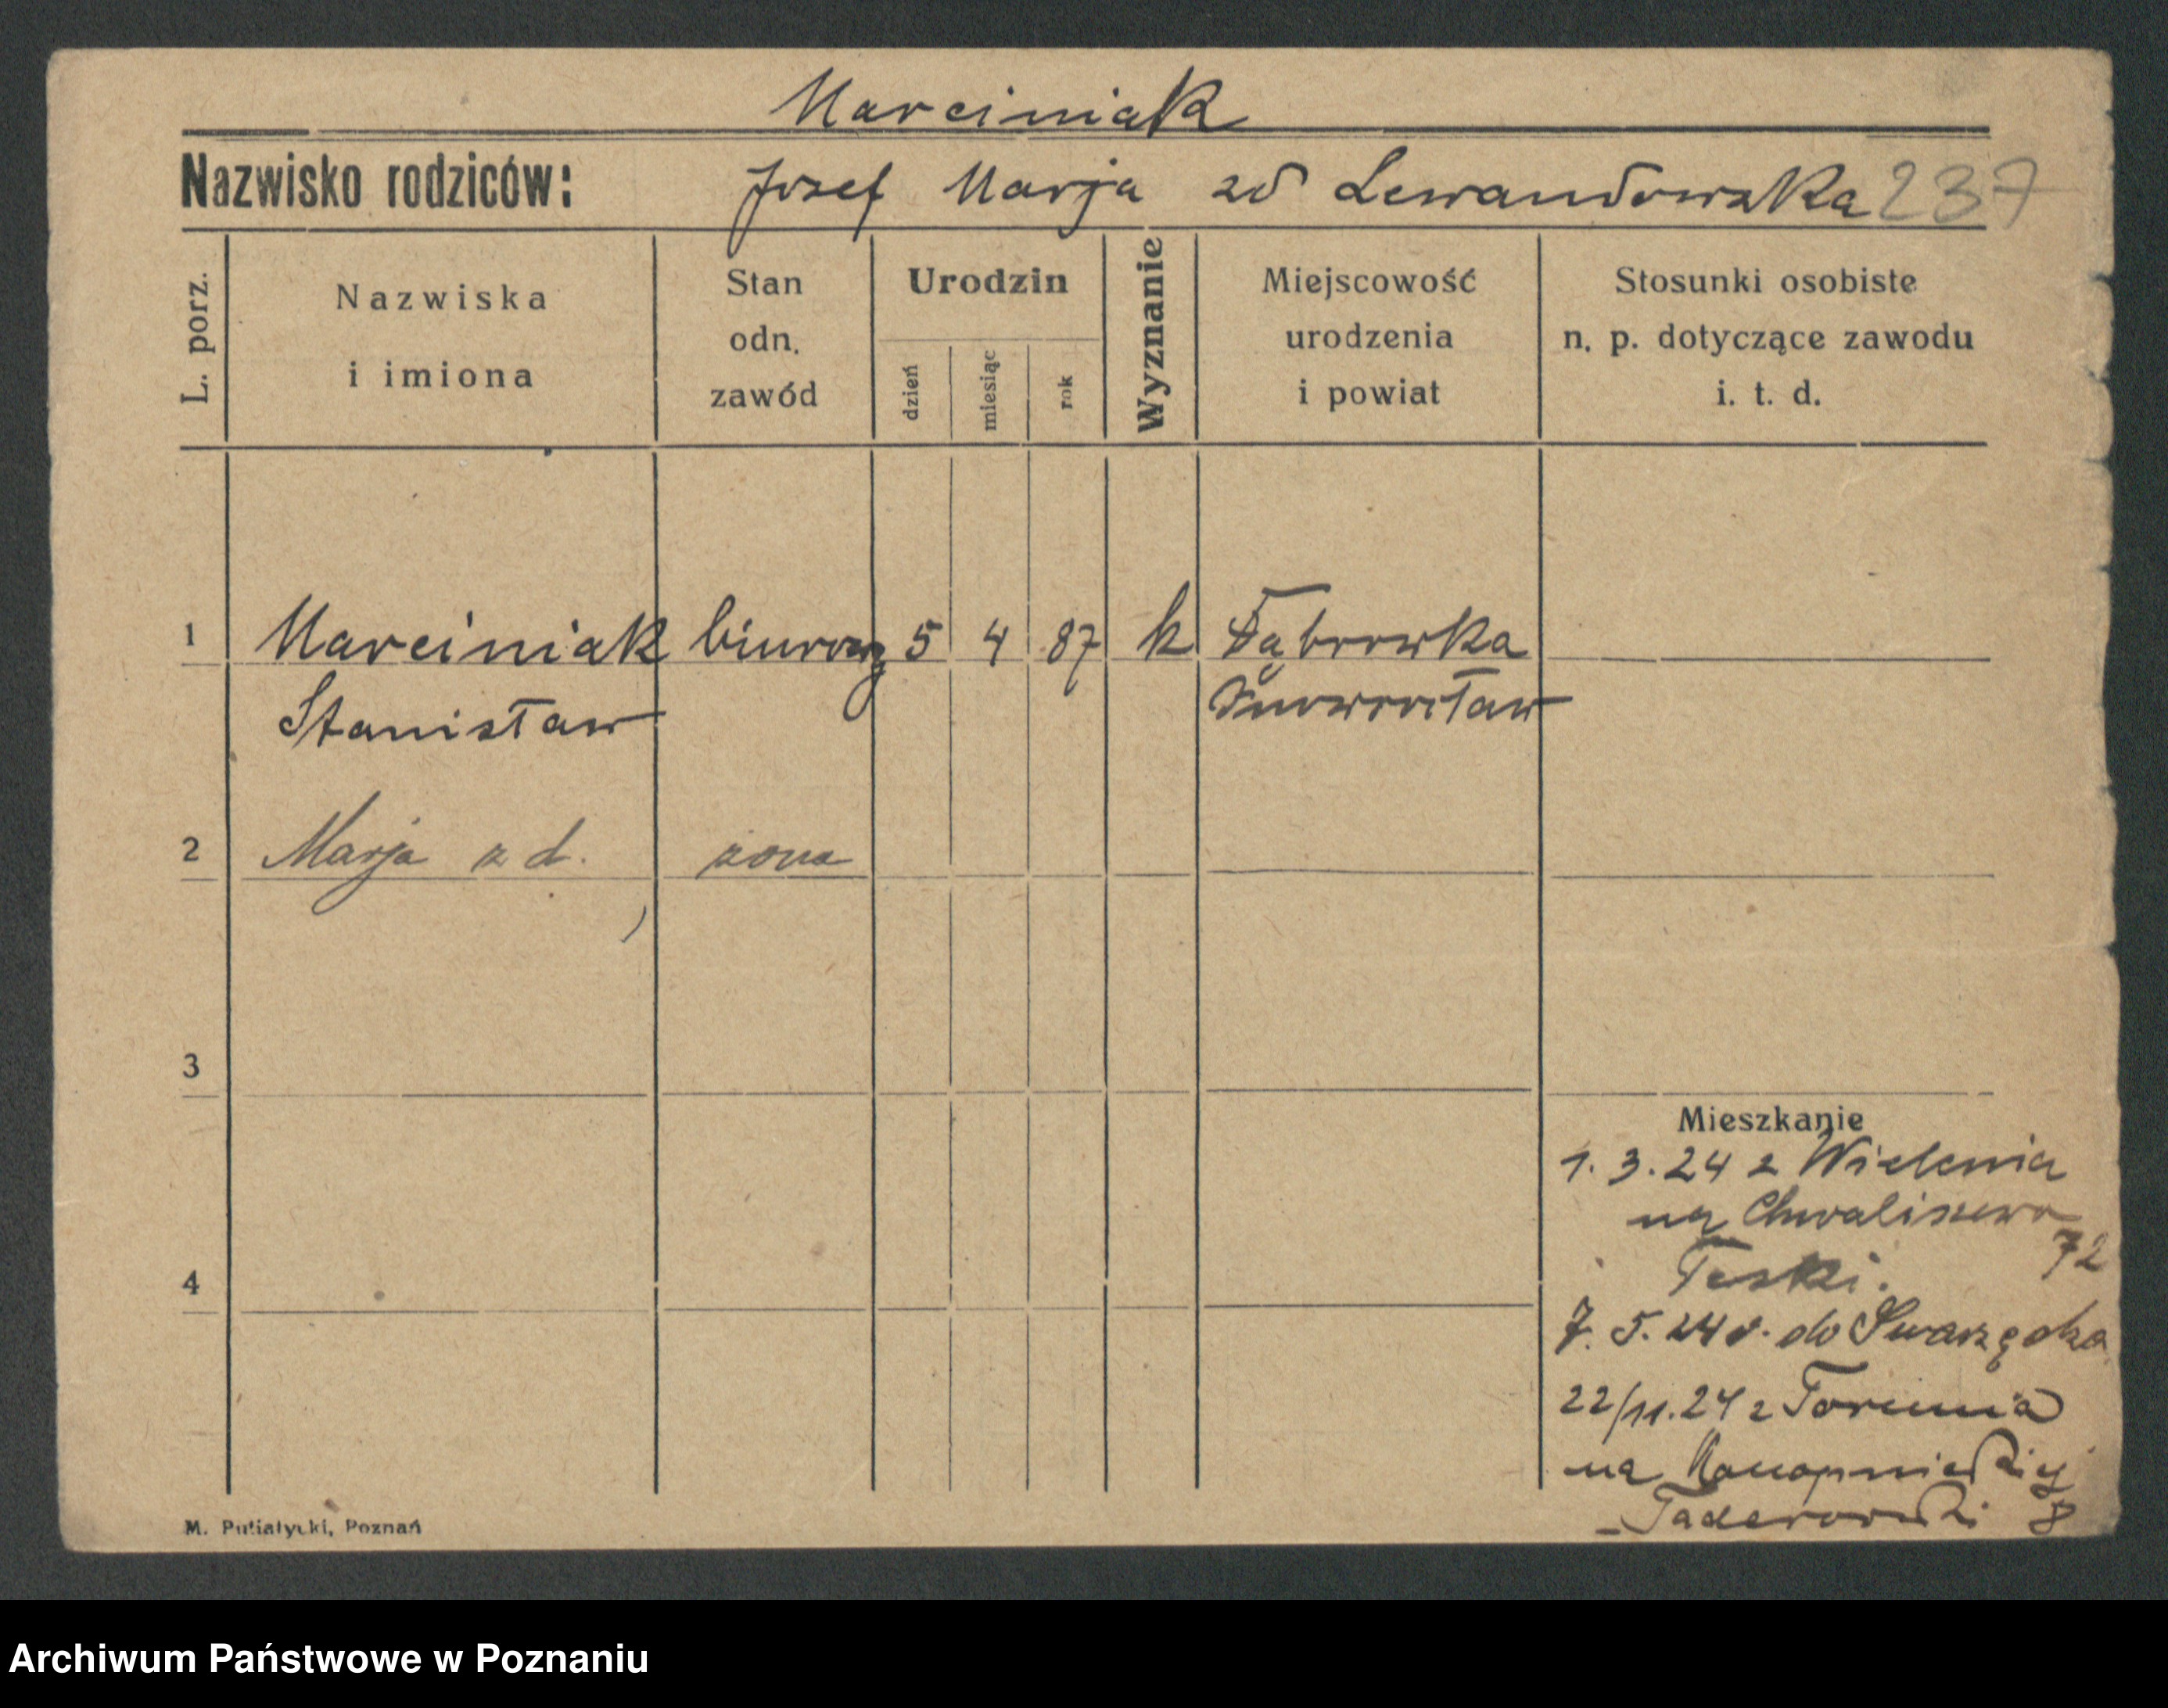 Marciniak
Nazwisko rodziców: Josef Marja zd Lewandowska 237
L. porz.
Nazwiska
i imiona
Stan
odn.
zawód
Urodzin
dzień
miesiąc
rok
Wyznanie
Miejscowość
urodzenia
i powiat
Stosunki osobiste
n. p. dotyczące zawodu
i. t. d.
1 Marciniak biurowy 5 4 87 k Dąbrowka
Stanisław Inowrocław
2 Marja z d. zona
3
Mieszkanie
1. 3. 24 z Wielenia
na Chwaliszewo
72
Teski.
4
7. 5. 24 r. do Swarzędza
22/11. 24 z Torunia
na Konopnickiej
8
M. Putiatycki, Poznań
Archiwum Państwowe w Poznaniu